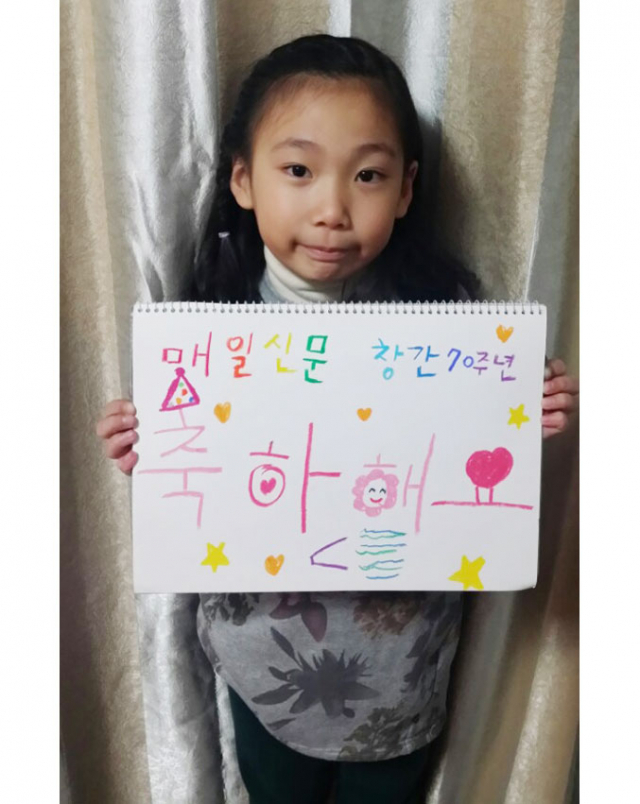 매일신문 창간70주년
축하해요